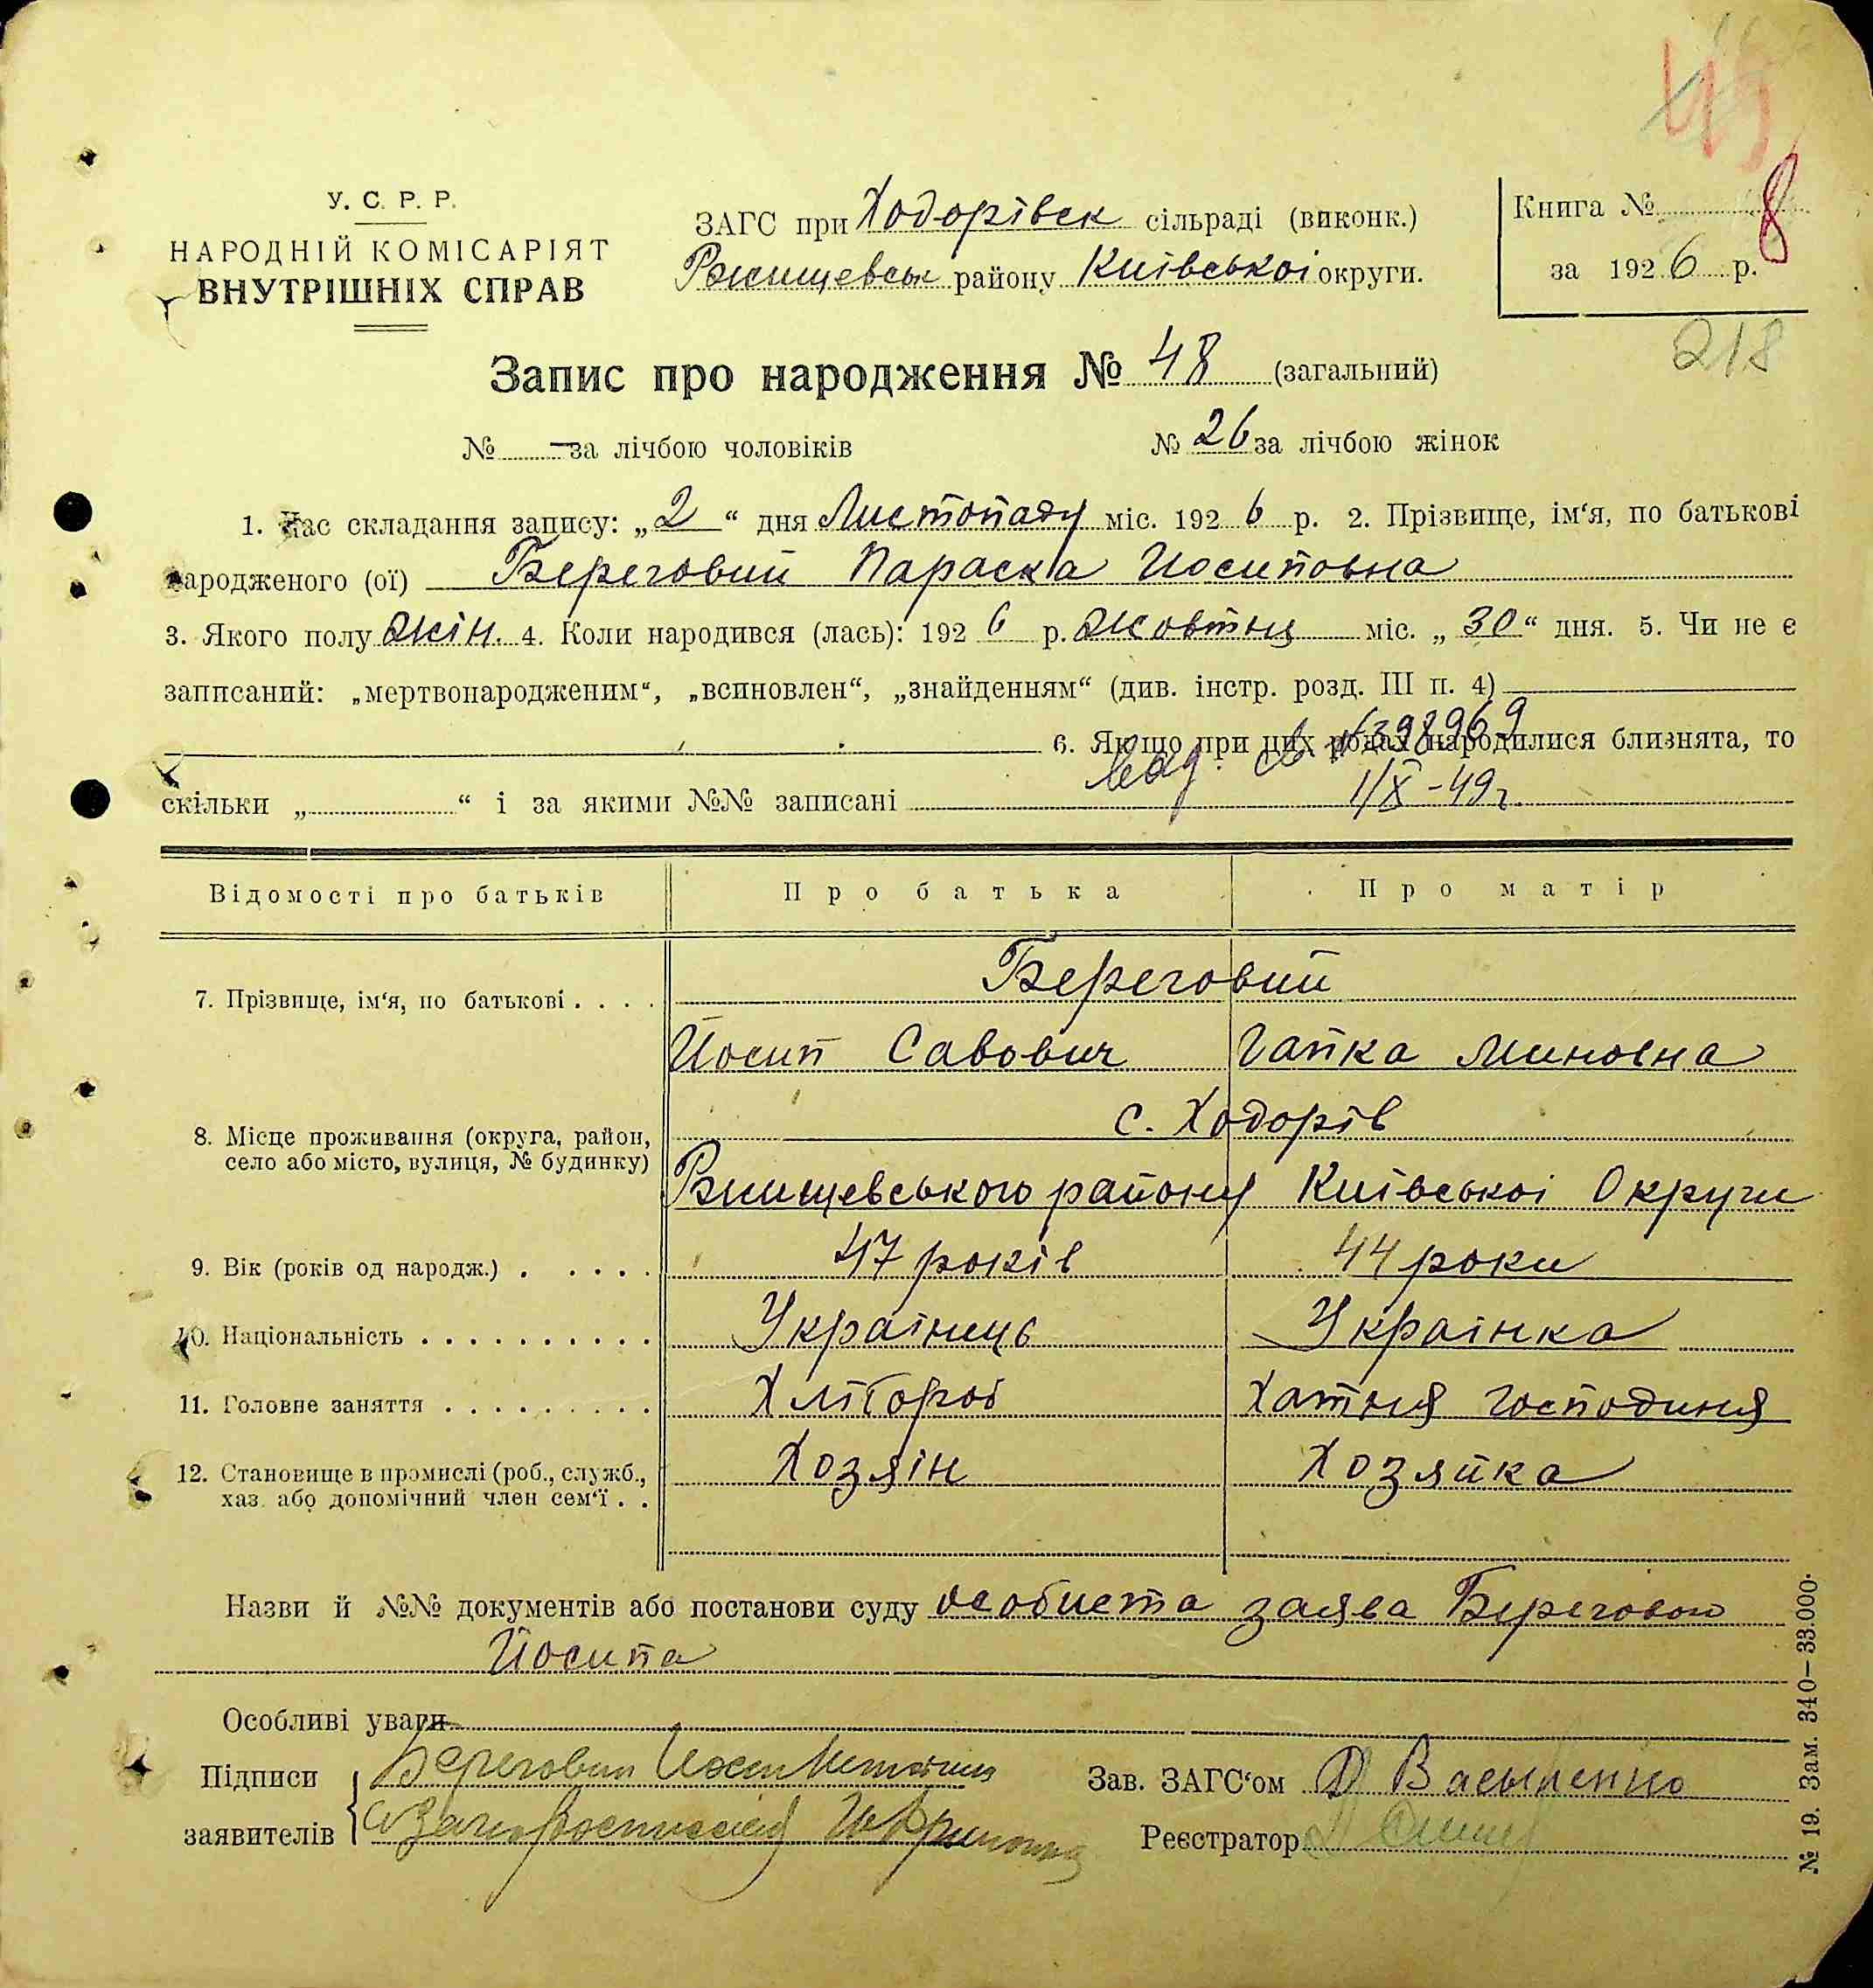 45
У. С. Р. Р.
НАРОДНІЙ КОМІСАРІЯТ
ВНУТРІШНІХ СПРАВ
ЗАГС при Ходорівск сільраді (виконк.)
Ржищевськ району Київської округи.
Книга № 8
за 1926 р.
218
Запис про народження № 48 (загальний)
№ — за лічбою чоловіків № 26 за лічбою жінок
1. Час складання запису: „2“ дня Листопаду міс. 1926 р. 2. Прізвище, ім‘я, по батькові
народженого (ої) Береговий Параска Йосиповна
3. Якого полу жін. 4. Коли народився (лась): 1926 р. Жовтня міс. „30“ дня. 5. Чи не є
записаний: „мертвонародженим“, „всиновлен“, „знайденням“ (див. інстр. розд. III п. 4)
6. Якщо при цих родах народилися близнята, то
398969
скільки „ “ і за якими №№ записані
1/X-49 г.
Відомості про батьків Про батька Про матір
Береговий
7. Прізвище, ім‘я, по батькові . . . .
Йосип Савович Гапка Миновна
с. Ходорів
8. Місце проживання (округа, район,
село або місто, вулиця, № будинку)
Ржищевського району Київської Округи
9. Вік (років од народж.) . . . . . 47 років 44 роки
10. Національність . . . . . . . . . . Українець Українка
11. Головне заняття . . . . . . . . . Хлібороб Хатня господиня
12. Становище в промислі (роб., служб.,
хаз. або допомічний член сем‘ї . .
Хозяїн Хозяйка
Назви й №№ документів або постанови суду особиста заява Берегового
Йосипа
Особливі уваги
Підписи
заявителів
Береговий Йосип
Зав. ЗАГС‘ом Д Василенко
Реєстратор
№ 19. Зам. 340—33.000.